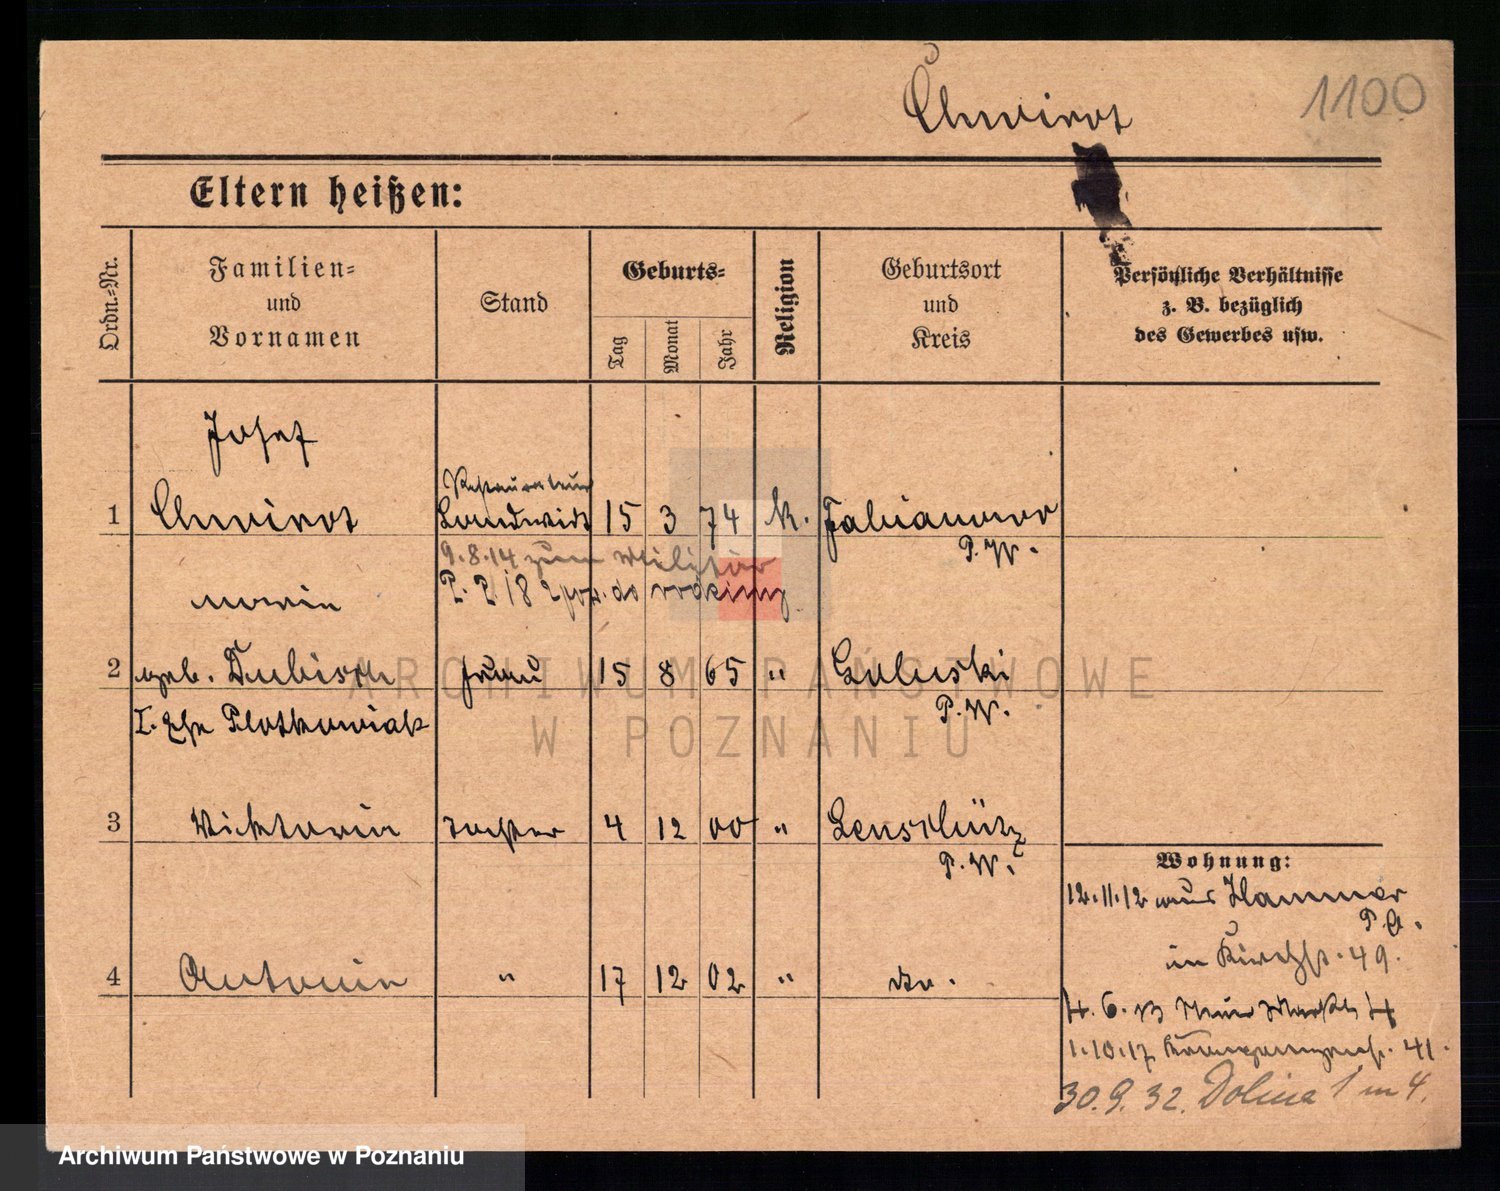 Chwirot
1100
Eltern heißen:
Ordn.-Nr.
Familien-
und
Vornamen
Stand
Geburts-
Tag
Monat
Jahr
Religion
Geburtsort
und
Kreis
Persönliche Verhältnisse
z. B. bezüglich
des Gewerbes usw.
Josef
Restaurateur
1 Chwirot Landwirt 15 3 74 k. Fabianowo
P. W.
9.8.14 zum Militär
P. P. 18
Maria
2 geb. Dubisch Frau 15 8 65 " Goluski
P. W.
I. Ehe Plotkowiak
3 Viktoria Tochter 4 12 00 " Lenschütz
P. W.
4 Antonia " 17 12 02 " do.
Wohnung:
12.11.12 aus Hammer
P. O.
in Kirchstr. 49.
4.6.13 Neuer Markt 4
1.10.17 41.
30.9.32. Dolina 1 m 4.
ARCHIWUM PAŃSTWOWE
W POZNANIU
Archiwum Państwowe w Poznaniu